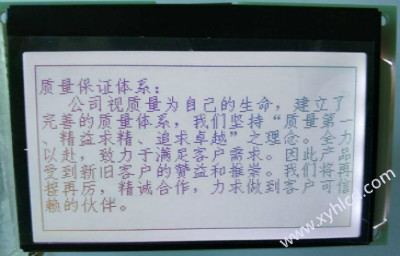 质量保证体系：
公司视质量为自己的生命，建立了
完善的质量体系，我们坚持“质量第一
、精益求精、追求卓越”之理念。全力
以赴，致力于满足客户需求。因此产品
受到新旧客户的赞益和推崇。我们将再
接再厉，精诚合作，力求做到客户可信
赖的伙伴。